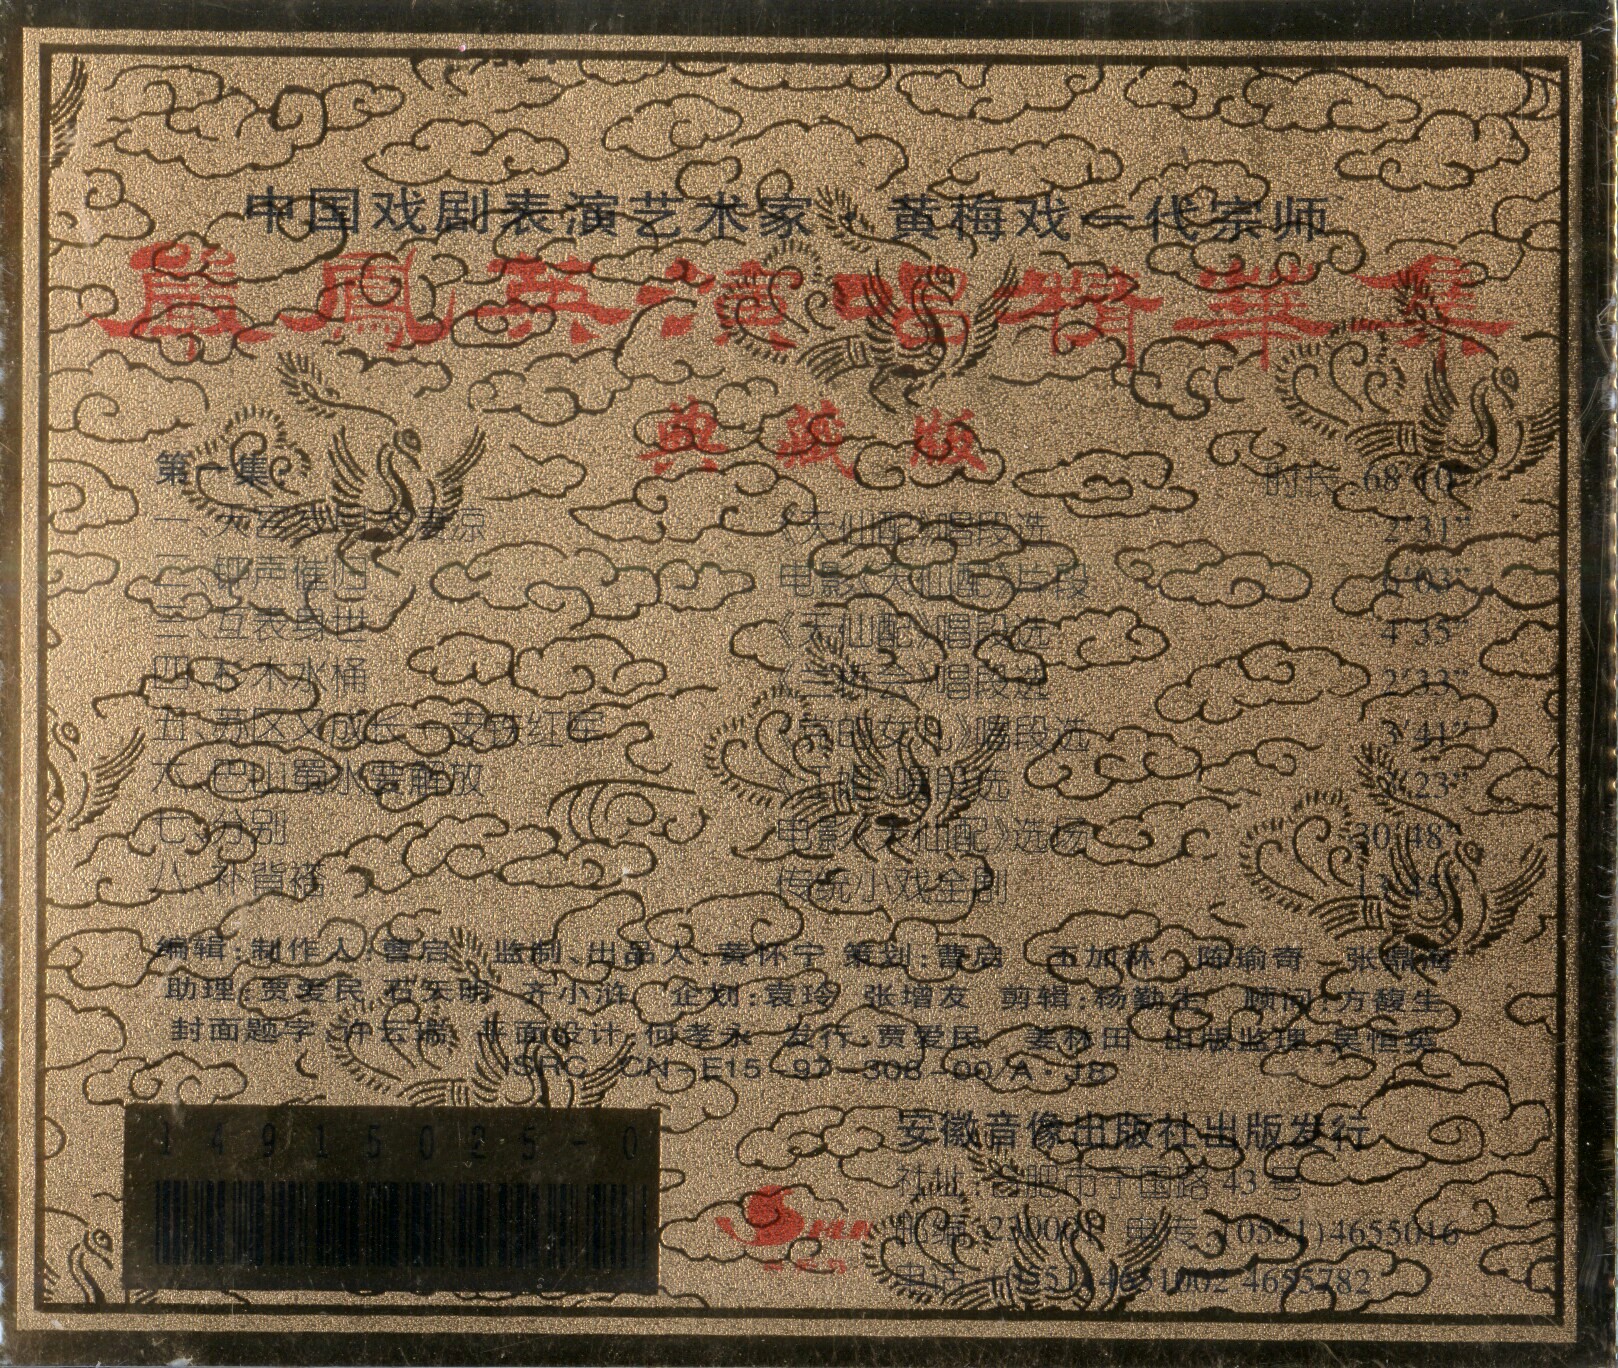 中国戏剧表演艺术家·黄梅戏一代宗师
嚴鳳英演唱精華集
典藏版
第一集 时长 68'10"
一、天宫 凄凉 《天仙配》唱段选 2'31"
二、钟声催归 电影《天仙配》片段 6'03"
三、互表身世 《天仙配》唱段选 4'35"
四、杉木水桶 《兰桥会》唱段选 2'33"
五、苏区又成长一支铁红军 《党的女儿》唱段选 3'41"
六、巴山蜀水要解放 《江姐》唱段选 23"
七、分别 电影《天仙配》选场 30'48"
八、补背褡 传统小戏全剧 13'45"
编辑:制作人:曹启 监制、出品人:黄怀宁 策划:曹启 王加林 陈瑜奇 张鼎海
助理:贾爱民 石天明 齐小浒 企划:袁玲 张增友 剪辑:杨勤生 顾问:方馥生
封面题字:许云瑞 平面设计:何孝永 发行:贾爱民 姜林田 出版监理:吴恒英
ISRC CN-E15-97-308-00/A·J8
14915025-0
安徽音像出版社出版发行
社址:合肥市宁国路43号
邮编:230001 电传:(0551)4655016
电话:(0551)4651002 4655782